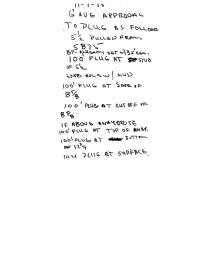 11-1-13
GAVE APPROVAL
TO PLUG AS FOLLOWS
5½ PULLED FROM
5875
100' PLUG AT STUB
OF 5½
100' PLUG AT SHOE OF
8⅝
100' PLUG AT CUT OFF OF
8⅝.
IF ABOVE ANHYDRITE
100' PLUG AT TOP OF ANHY.
100' PLUG AT BOTTOM
OF 12¼
10 SX PLUG AT SURFACE.